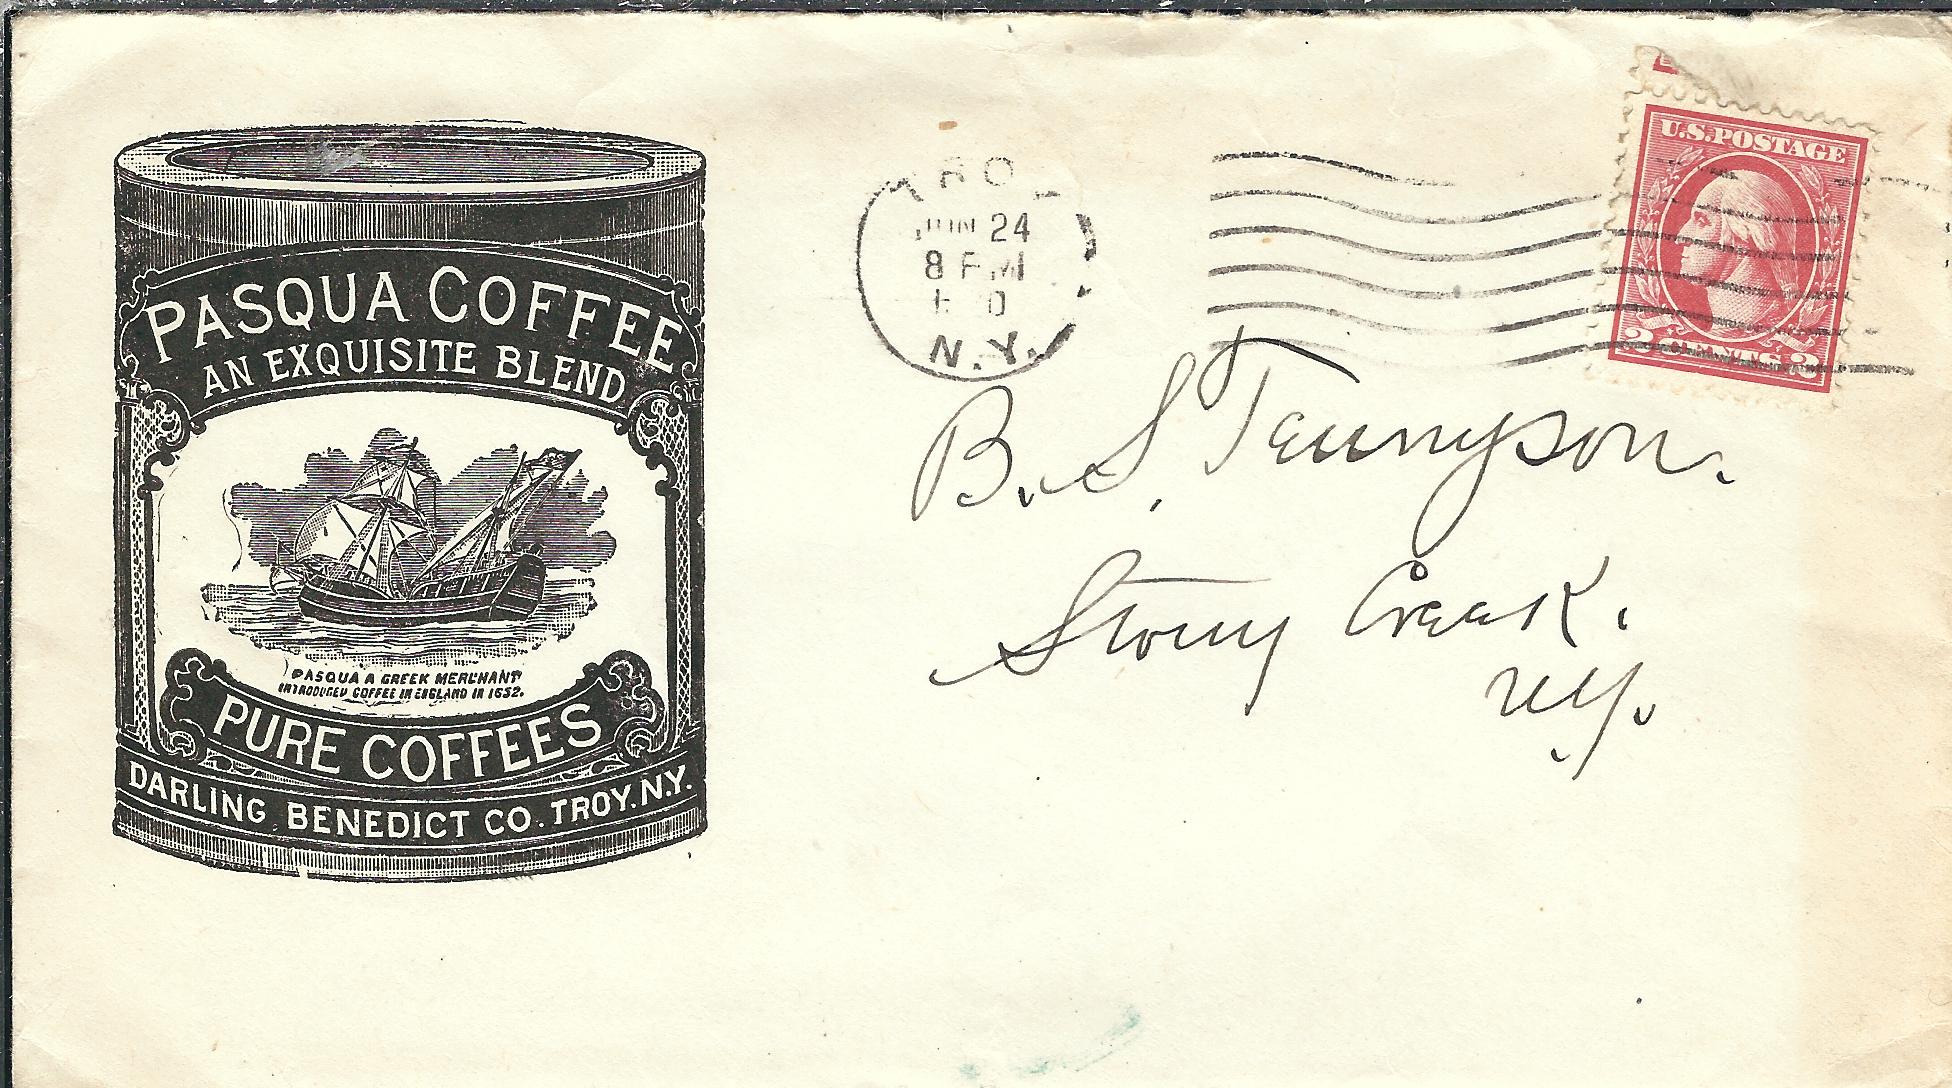 PASQUA COFFEE
AN EXQUISITE BLEND
PASQUA A GREEK MERCHANT
INTRODUCED COFFEE IN ENGLAND IN 1652.
PURE COFFEES
DARLING BENEDICT CO. TROY. N.Y.
TRO
JUN 24
8 PM
N.Y.
U.S. POSTAGE
2 CENTS 2
B. S. Tennyson.
Stony Creek.
N.Y.